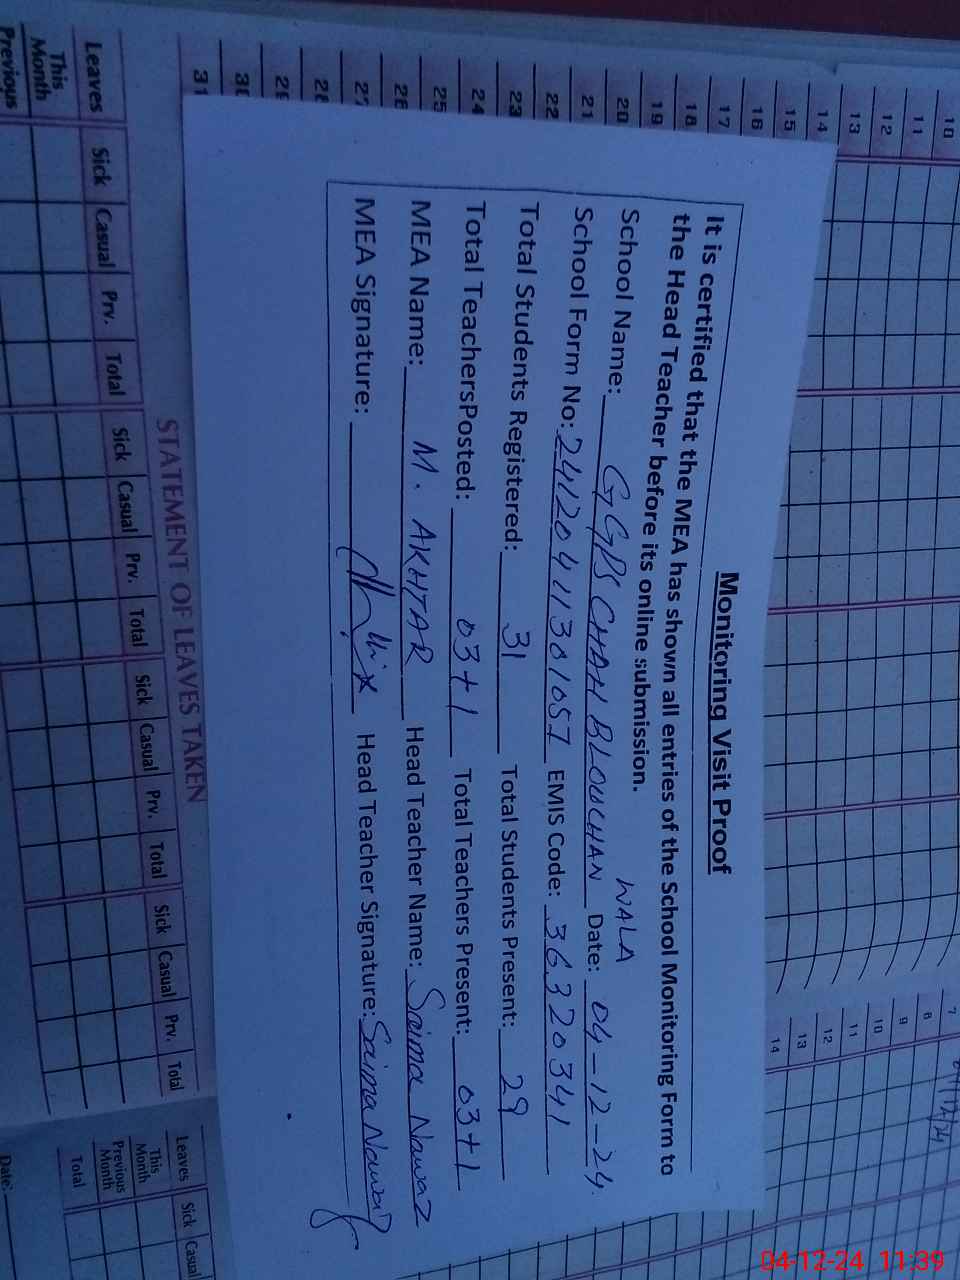 Monitoring Visit Proof
It is certified that the MEA has shown all entries of the School Monitoring Form to
the Head Teacher before its online submission.
School Name: GGPS CHAH BLOUCHAN WALA Date: 04-12-24
School Form No: EMIS Code: 36320341
Total Students Registered: 31 Total Students Present: 29
Total TeachersPosted: 03+1 Total Teachers Present: 03+1
MEA Name: M. AKHTAR Head Teacher Name: Saima Nawaz
MEA Signature: Head Teacher Signature: Saima Nawaz
10
11
12
13
14
15
16
17
18
19
20
21
22
23
24
25
30
31
7
8
9
10
11
12
13
14
STATEMENT OF LEAVES TAKEN
Leaves Sick Casual Prv. Total Sick Casual Prv. Total Sick Casual Prv. Total Sick Casual Prv. Total
This Month
Previous
Leaves Sick Casual
This Month
Previous Month
Total
Date:
04-12-24 11:39